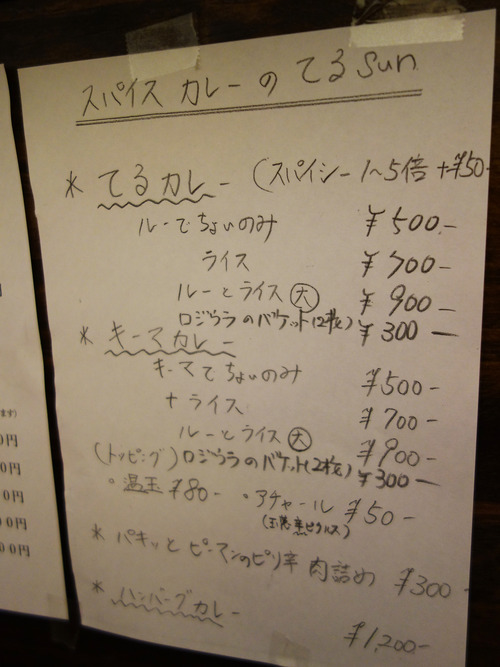 スパイス カレーの てるSun
* てるカレー (スパイシー 1〜5倍 +¥50-
ルーでちょいのみ ¥500-
ライス ¥700-
ルーとライス 大 ¥900-
ロジウラのバケット(2枚) ¥300-
* キーマカレー
キーマでちょいのみ ¥500-
+ライス ¥700-
ルーとライス 大 ¥900-
(トッピング) ロジウラのバケット(2枚) ¥300-
・温玉 ¥80- ・アチャール ¥50-
(玉葱 ピクルス)
* パキッと ピーマンのピリ辛 肉詰め ¥300-
* ハンバーグカレー
¥1,200-
ます)
0円
0円
0円
00円
00円